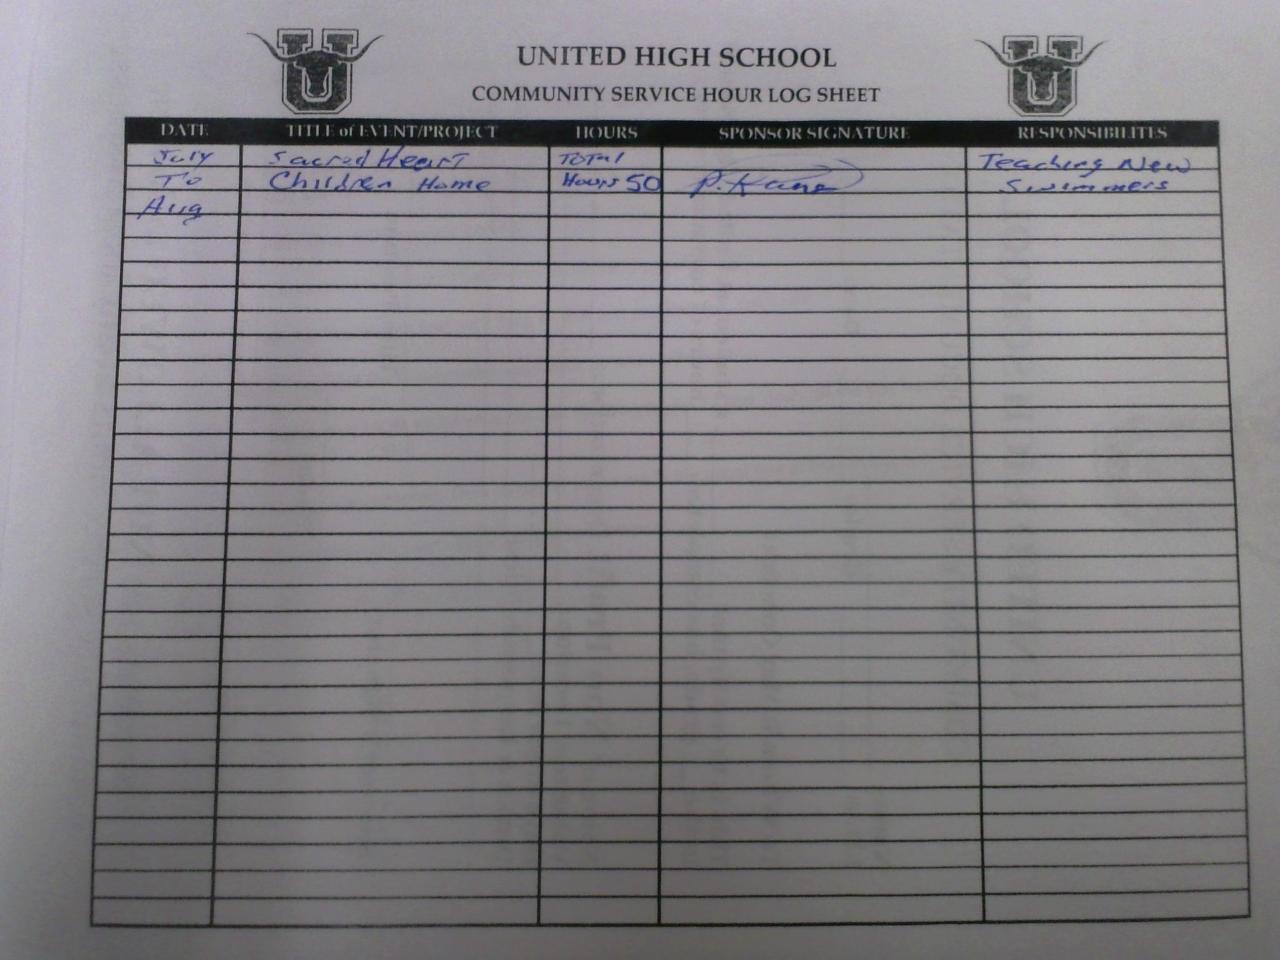 U
UNITED HIGH SCHOOL
U
COMMUNITY SERVICE HOUR LOG SHEET
DATE TITLE of EVENT/PROJECT HOURS SPONSOR SIGNATURE RESPONSIBILITES
July Sacred Heart Total Teaching New
To Children Home Hours 50 P. Kane Swimmers
Aug